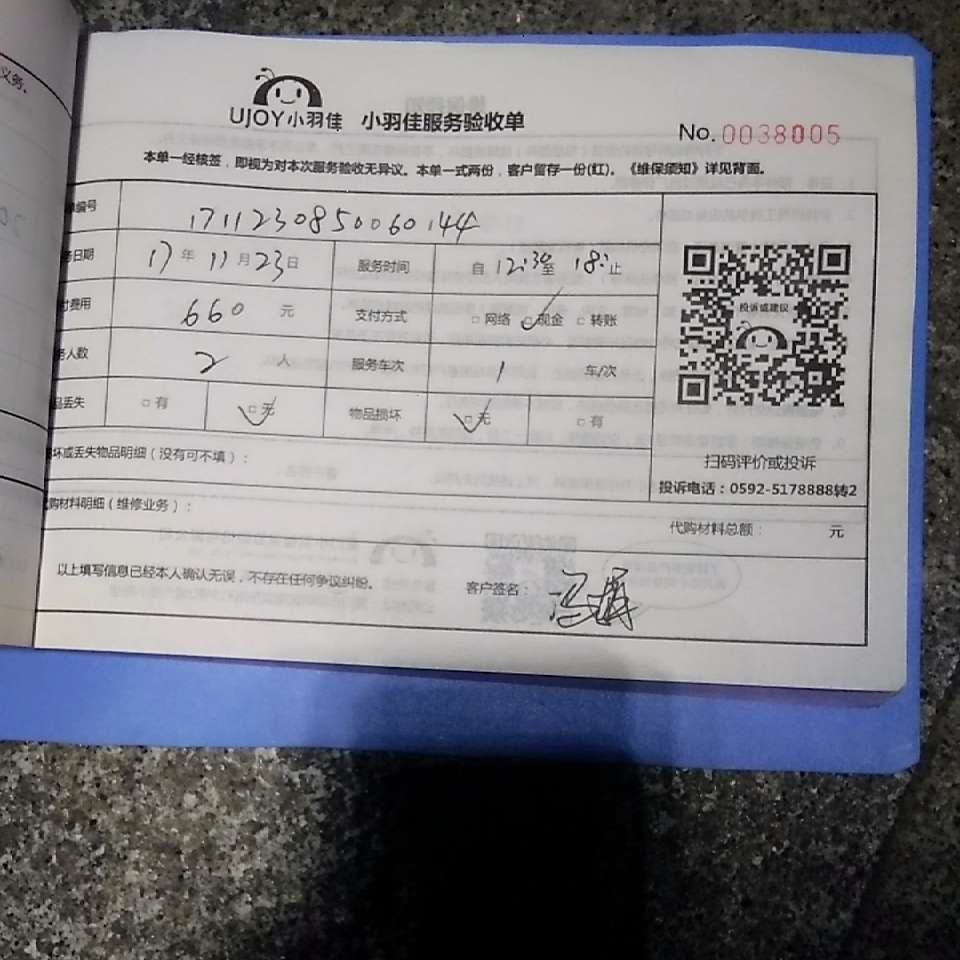 义务、
UJOY小羽佳 小羽佳服务验收单
No. 0038005
本单一经核签，即视为对本次服务验收无异议。本单一式两份，客户留存一份(红)。《维保须知》详见背面。
单编号 1711230850060144
务日期 17 年 11 月 23 日 服务时间 自 12:30 至 18: 止
付费用 660 元 支付方式 □ 网络 ☑ 现金 □ 转账
务人数 2 人 服务车次 1 车/次
品丢失 □ 有 ☑ 无 物品损坏 ☑ 无 □ 有
投诉或建议
扫码评价或投诉
投诉电话：0592-5178888转2
坏或丢失物品明细（没有可不填）：
购材料明细（维修业务）：
代购材料总额： 元
以上填写信息已经本人确认无误，不存在任何争议纠纷。 客户签名：